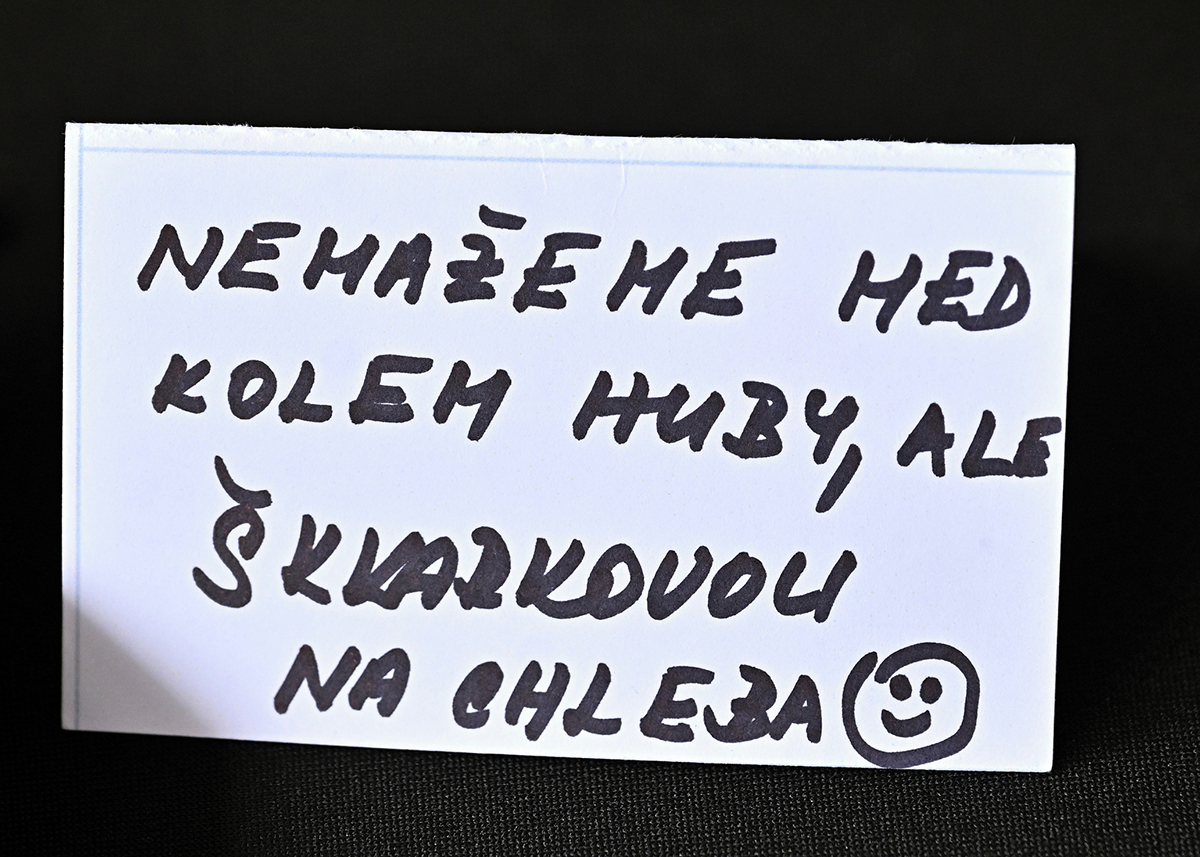 NEMAŽEME MED
KOLEM HUBY, ALE
ŠKVARKOVOU
NA CHLEBA